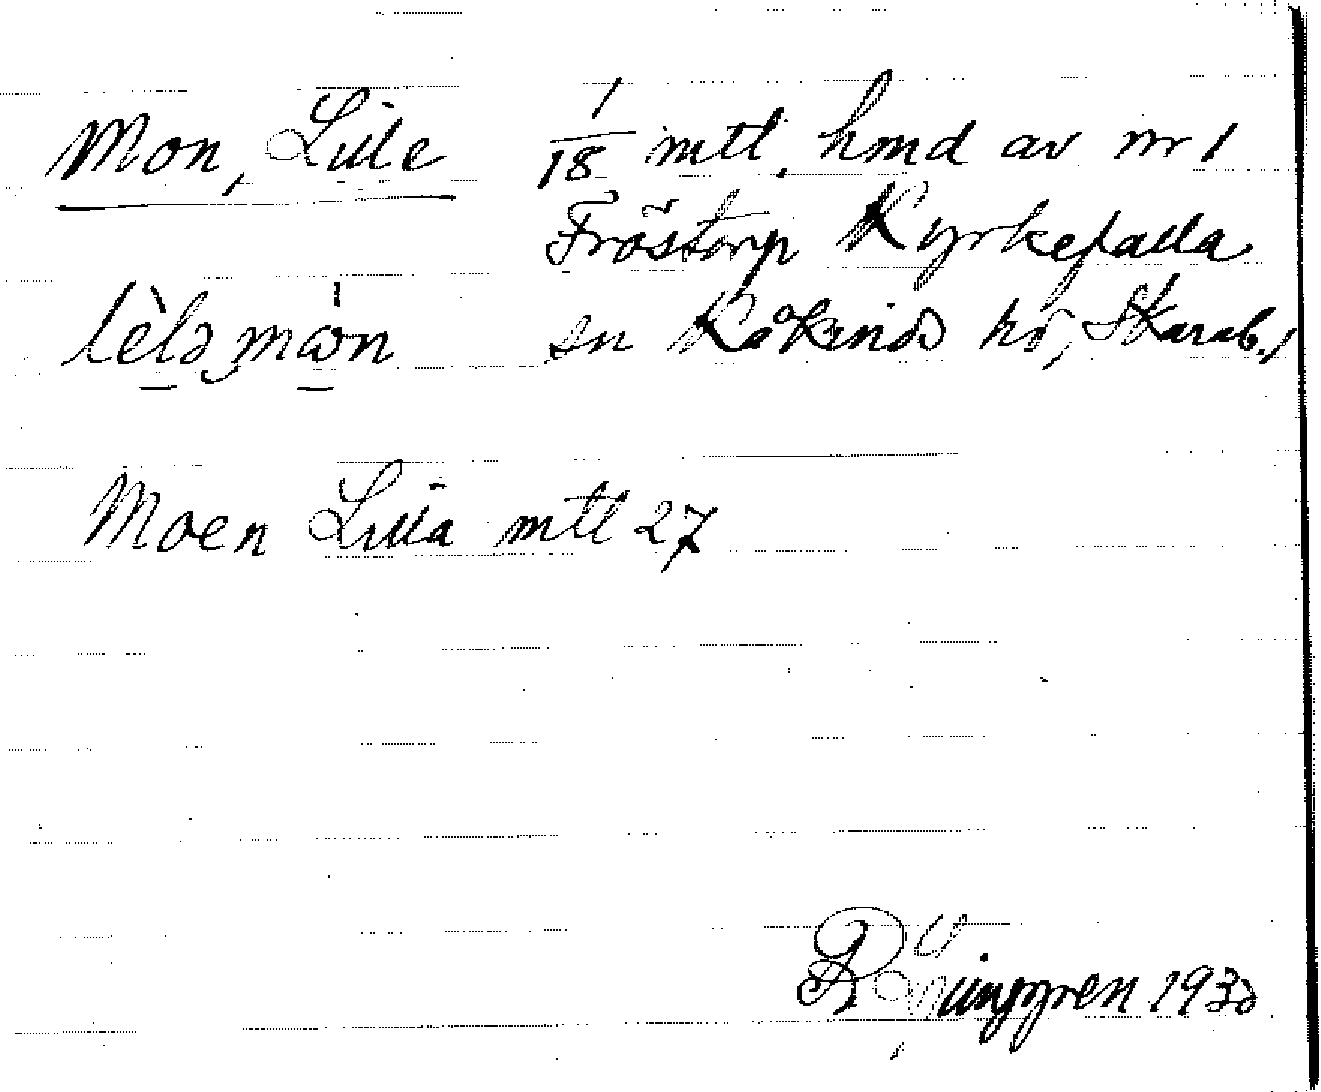 Mon, Lille 1/18 mtl. hmd av nr 1
Fröstorp Kyrkefalla
lèlə mɷn sn Kåkinds hd, Skarab.l
Moen Lilla mtl 27
R Ljunggren 1930